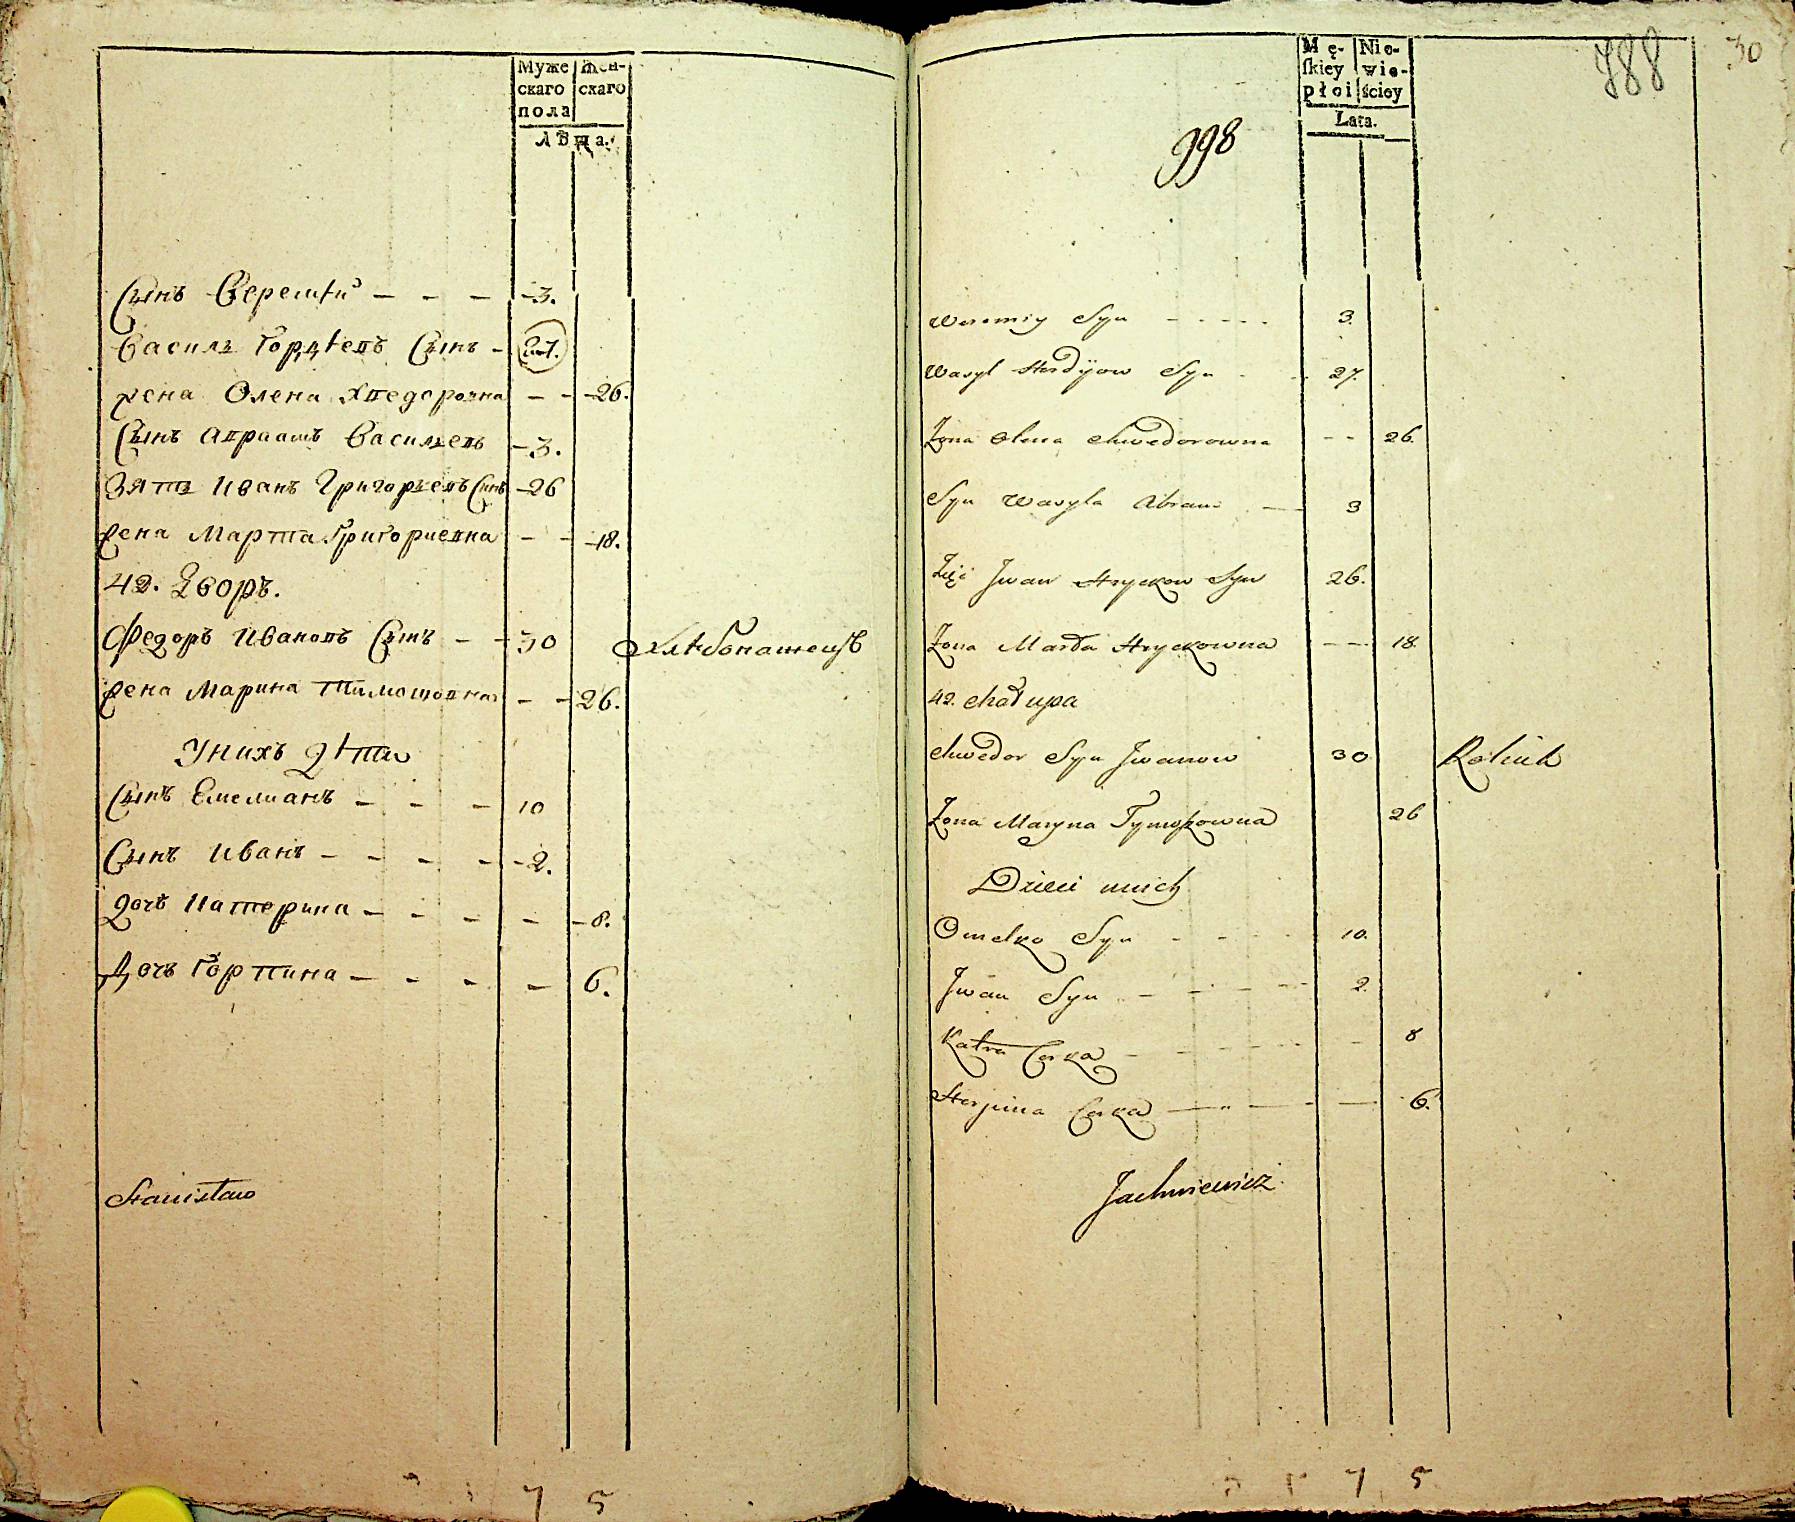 Муже
скаго
пола
Жен-
скаго
Лѣта.
Сынъ Веремѣй - - - 3.
Василь Гордѣевъ Сынъ - 27.
Жена Олена Хведоровна - - 26.
Сынъ Авраамъ Васильевъ 3.
Зять Иванъ Григорьевъ Сынъ 26
Жена Марта Григориевна - - 18.
42. Дворъ.
Федоръ Ивановъ Сынъ - - 30 Хлѣбопашецъ
Жена Марина Тимошовна - - 26.
У нихъ Дѣти
Сынъ Емелианъ - - - 10
Сынъ Иванъ - - - - 2.
Дочъ Катерина - - - - 8.
Дочъ Горпина - - - - 6.
Stanisław
7 5
Mę-
skiey
płci
Nie-
wie-
ściey
Lata.
988
30
998
Weremiy Syn - - - - 3.
Wasyl Hordijow Syn - - 27.
Żona Olena Chwedorowna - - 26.
Syn Wasyla Abram - 3
Zięć Jwan Hryckow Syn 26.
Żona Marta Hryckowna - - 18.
42. Chałupa
Chwedor Syn Jwanow 30 Rolnik
Żona Maryna Tymoszowna 26
Dzieci u nich
Omelko Syn - - - 10.
Jwan Syn - - - - 2.
Katra Corka - - - - 8
Horpina Corka - - - - 6.
Jachniewicz
7 5